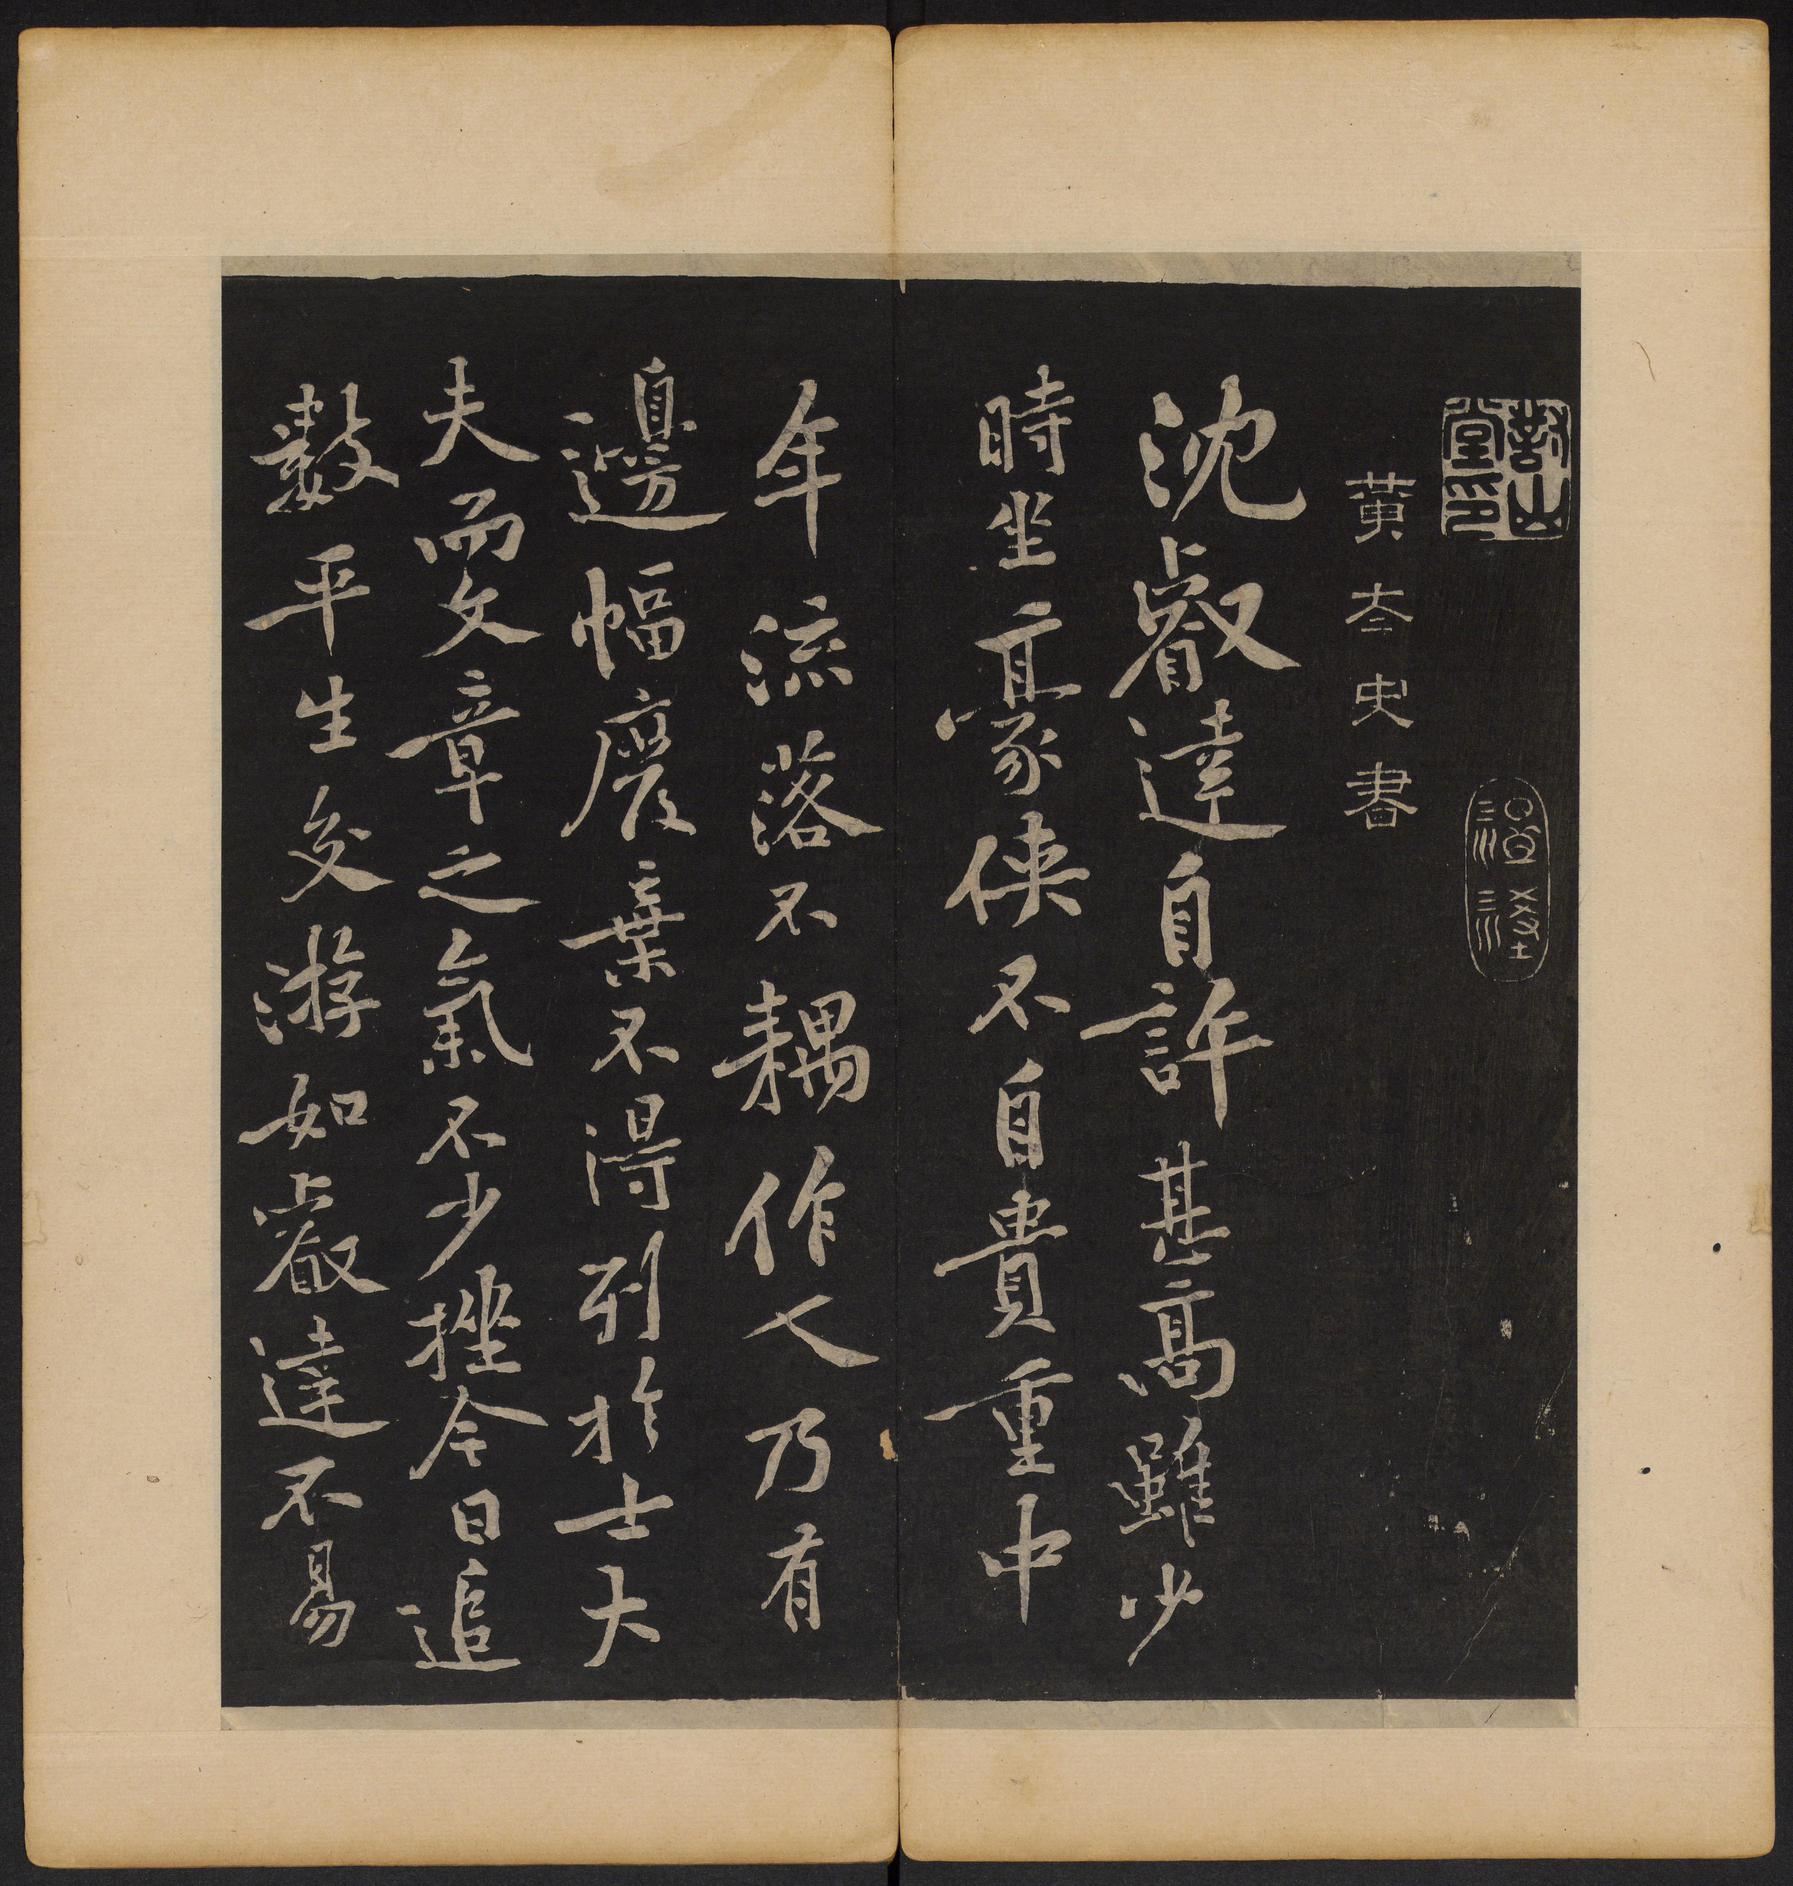 黃太史書
沈叡達自許甚高雖少
時坐豪俠不自貴重中
年流落不耦作人乃有
邊幅廢棄不得列於士大
夫而文章之氣不少挫今日追
數平生交游如叡達不易